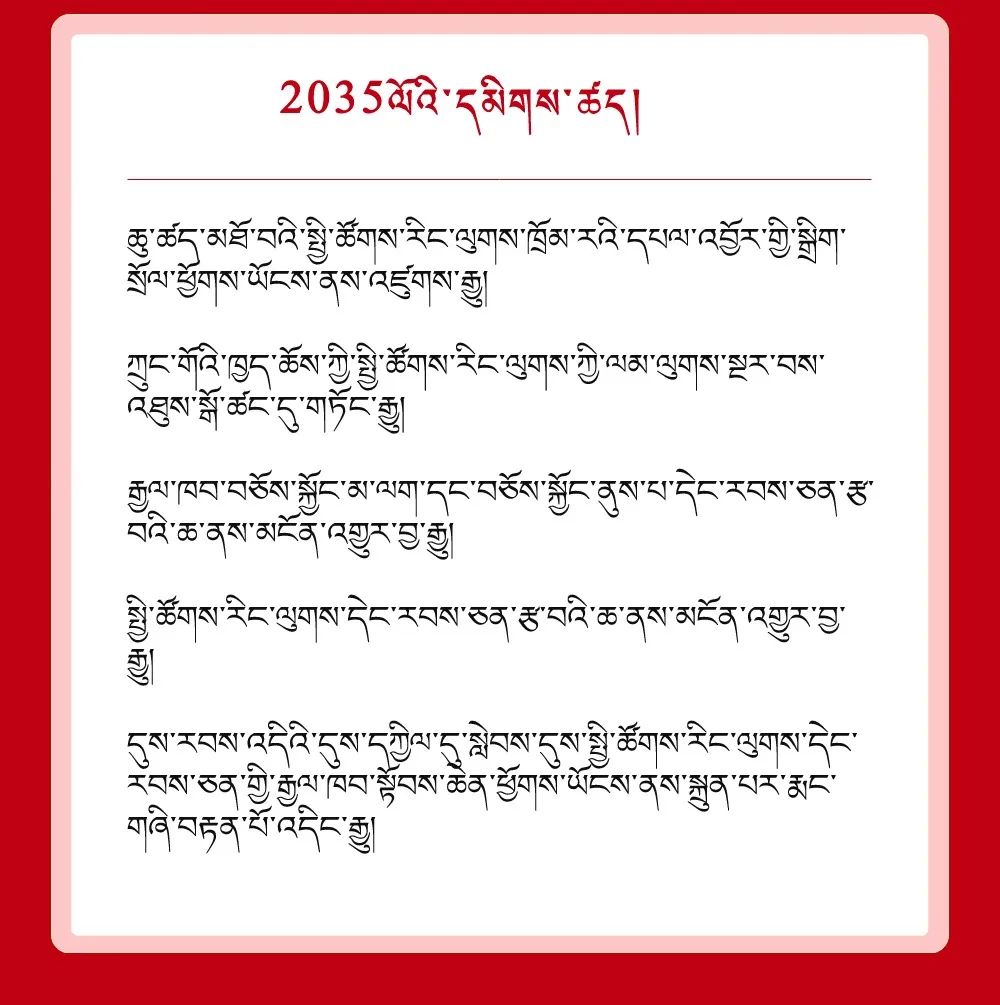 2035ལོའི་དམིགས་ཚད།
ཆུ་ཚད་མཐོ་བའི་སྤྱི་ཚོགས་རིང་ལུགས་ཁྲོམ་རའི་དཔལ་འབྱོར་གྱི་སྒྲིག་
སྲོལ་ཕྱོགས་ཡོངས་ནས་འཛུགས་རྒྱུ།
ཀྲུང་གོའི་ཁྱད་ཆོས་ཀྱི་སྤྱི་ཚོགས་རིང་ལུགས་ཀྱི་ལམ་ལུགས་སྔར་བས་
འཐུས་སྒོ་ཚང་དུ་གཏོང་རྒྱུ།
རྒྱལ་ཁབ་བཅོས་སྐྱོང་མ་ལག་དང་བཅོས་སྐྱོང་ནུས་པ་དེང་རབས་ཅན་རྩ་
བའི་ཆ་ནས་མངོན་འགྱུར་བྱ་རྒྱུ།
སྤྱི་ཚོགས་རིང་ལུགས་དེང་རབས་ཅན་རྩ་བའི་ཆ་ནས་མངོན་འགྱུར་བྱ་
རྒྱུ།
དུས་རབས་འདིའི་དུས་དཀྱིལ་དུ་སླེབས་དུས་སྤྱི་ཚོགས་རིང་ལུགས་དེང་
རབས་ཅན་གྱི་རྒྱལ་ཁབ་སྟོབས་ཆེན་ཕྱོགས་ཡོངས་ནས་སྐྲུན་པར་རྨང་
གཞི་བརྟན་པོ་འདིང་རྒྱུ།